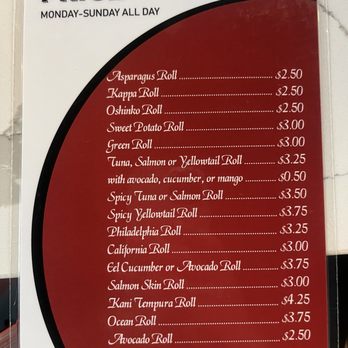 MONDAY-SUNDAY ALL DAY
Asparagus Roll $2.50
Kappa Roll $2.50
Oshinko Roll $2.50
Sweet Potato Roll $3.00
Green Roll $3.00
Tuna, Salmon or Yellowtail Roll $3.25
with avocado, cucumber, or mango $0.50
Spicy Tuna or Salmon Roll $3.50
Spicy Yellowtail Roll $3.75
Philadelphia Roll $3.25
California Roll $3.00
Eel Cucumber or Avocado Roll $3.75
Salmon Skin Roll $3.00
Kani Tempura Roll $4.25
Ocean Roll $3.75
Avocado Roll $2.50